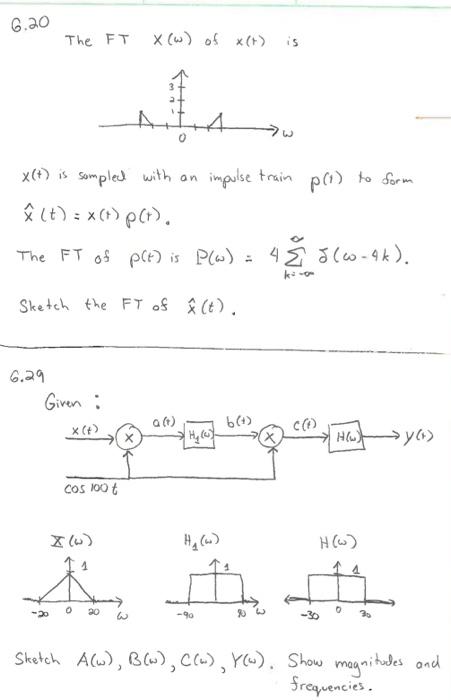 6.20
The FT X(ω) of x(t) is
3
2
1
0
ω
x(t) is sampled with an impulse train p(t) to form
x̂(t) = x(t) p(t).
The FT of p(t) is P(ω) = 4 ∑ δ(ω-4k).
∞
k=-∞
Sketch the FT of x̂(t).
6.29
Given :
x(t) X a(t) H₁(ω) b(t) X c(t) H(ω) y(t)
cos 100t
X(ω) H₁(ω) H(ω)
1 1 1
-20 0 20 ω -90 90 ω -30 0 30
Sketch A(ω), B(ω), C(ω), Y(ω). Show magnitudes and
frequencies.